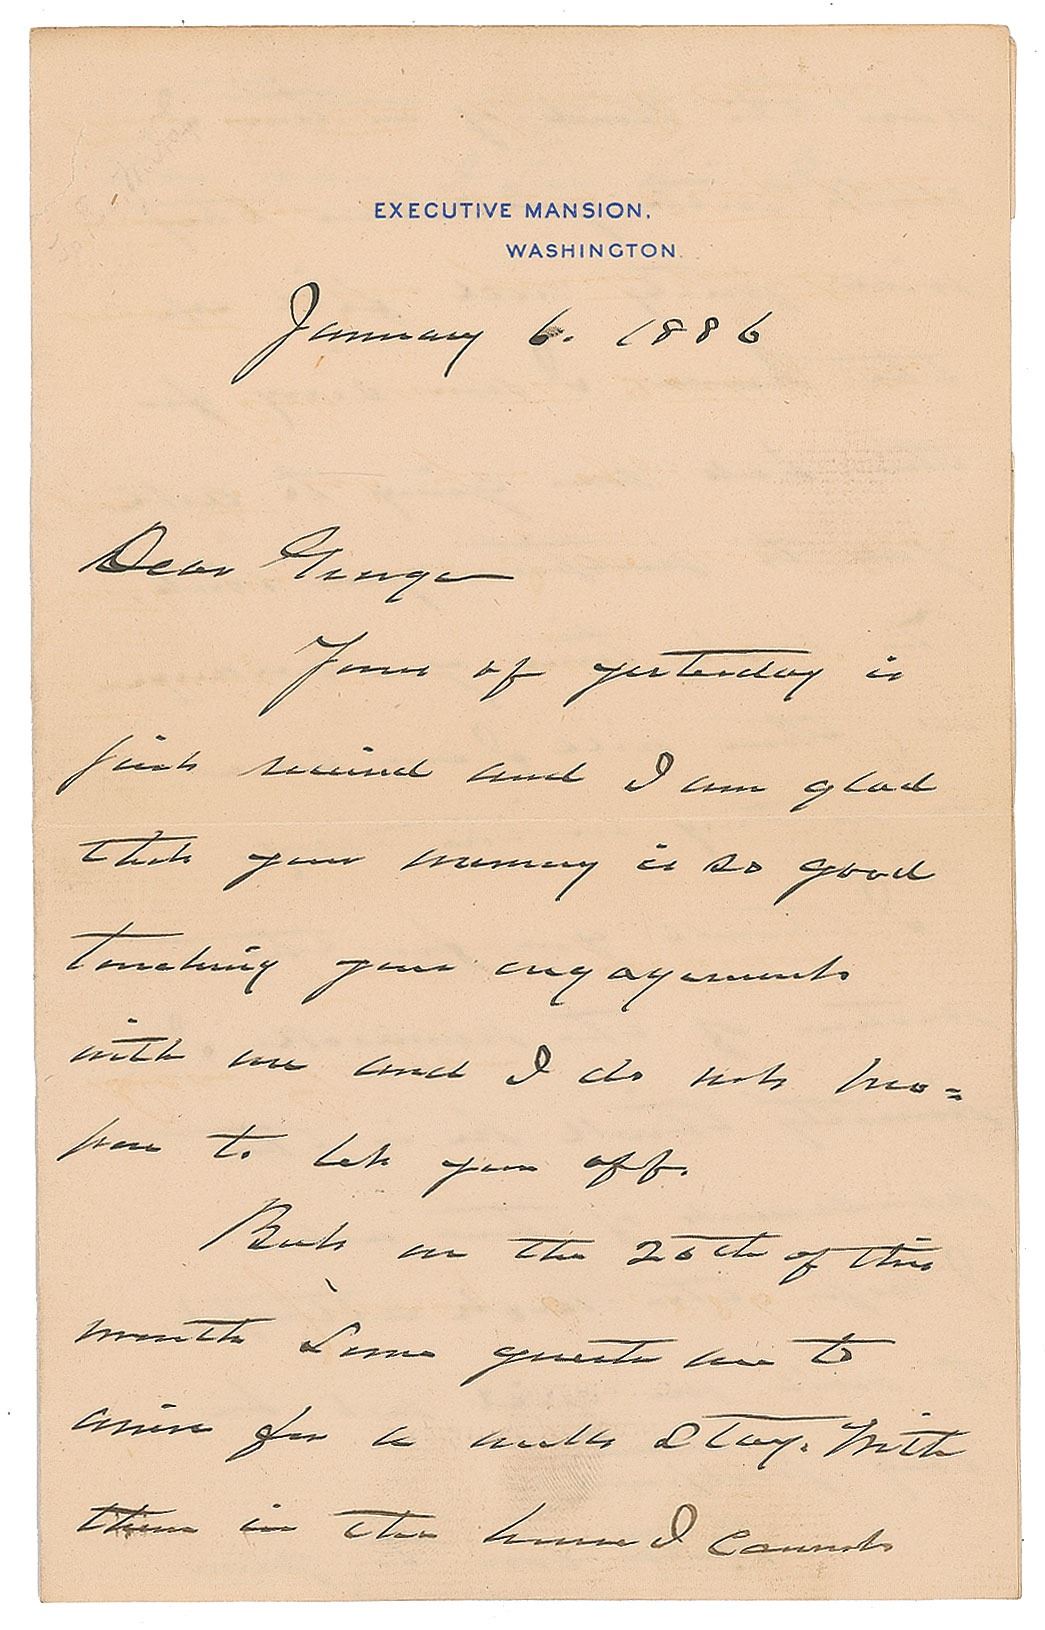 EXECUTIVE MANSION,
WASHINGTON.
January 6. 1886
Dear George
Yours of yesterday is
just received and I am glad
that your memory is so good
touching your engagements
with me and I do not pro=
pose to let you off.
But on the 20th of this
month some guests are to
arrive for a weeks stay. With
them in the house I cannot